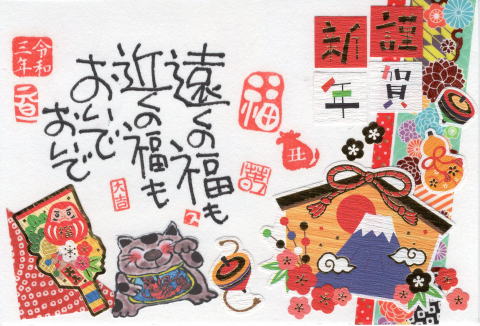 謹賀
新年
遠くの福も
近くの福も
おいで
おいで
令和
三年
元旦
福
丑
大吉